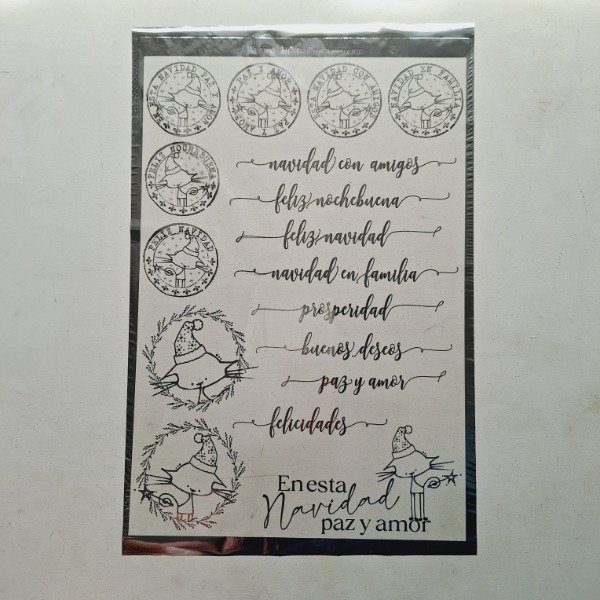 EN ESTA NAVIDAD PAZ Y AMOR
PAZ Y AMOR PAZ Y AMOR
NAVIDAD CON AMIGOS
NAVIDAD EN FAMILIA
FELIZ NOCHEBUENA
FELIZ NAVIDAD
navidad con amigos
feliz nochebuena
feliz navidad
navidad en familia
prosperidad
buenos deseos
paz y amor
felicidades
En esta
Navidad
paz y amor